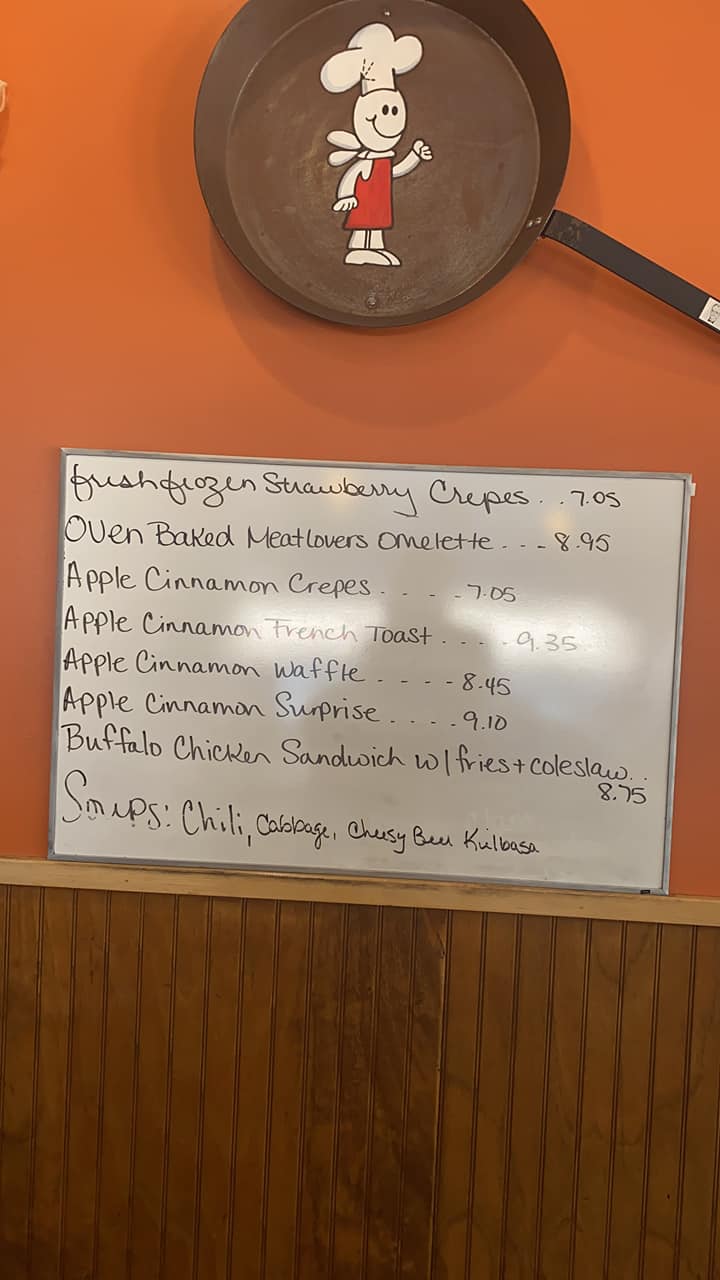 fresh frozen Strawberry Crepes . . 7.05
Oven Baked Meatlovers Omelette . . - 8.95
Apple Cinnamon Crepes . . . - 7.05
Apple Cinnamon French Toast . . . . 9.35
Apple Cinnamon Waffle . - - - 8.45
Apple Cinnamon Surprise . . . . 9.10
Buffalo Chicken Sandwich w/ fries + coleslaw . .
8.75
Soups: Chili, Cabbage, Cheesy Beer Kielbasa